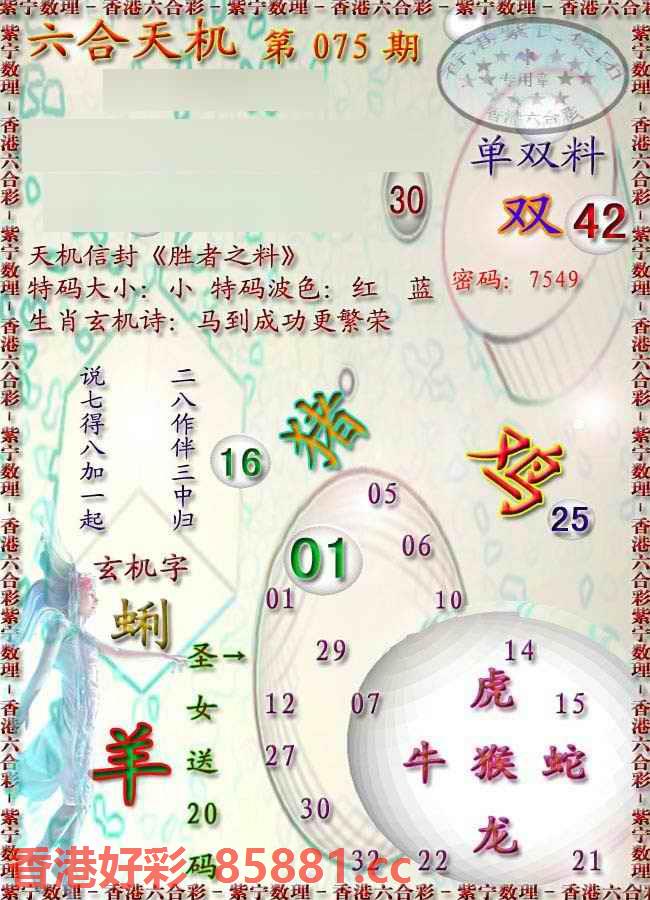 紫宁数理－香港六合彩－紫宁数理－香港六合彩－紫宁数理
六合天机 第 075 期
香港紫宁集团
专用章
香港六合彩
单双料
双 42
30
天机信封《胜者之料》
特码大小：小 特码波色：红 蓝
密码：7549
生肖玄机诗：马到成功更繁荣
二八作伴三中归
说七得八加一起
猪
16
鸡
25
玄机字
蜊
羊
圣女送20码
→
01
05
06
01 10
29 14
12 07 15
27
30
32 22 21
虎
牛 猴 蛇
龙
香港好彩 85881.cc
紫宁数理－香港六合彩－紫宁数理－香港六合彩－紫宁数理